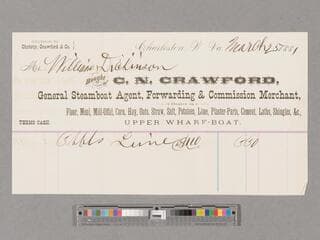 Successor to
Christy, Crawford & Co.
Charleston, W. Va. March 25 1881
Mr William Dickinson
Bought of
C. N. CRAWFORD,
General Steamboat Agent, Forwarding & Commission Merchant,
Dealer in
Flour, Meal, Mill-Offal, Corn, Hay, Oats, Straw, Salt, Potatoes, Lime, Plaster-Paris, Cement, Laths, Shingles, &c.,
TERMS CASH.
UPPER WHARF-BOAT.
Bbls Lime